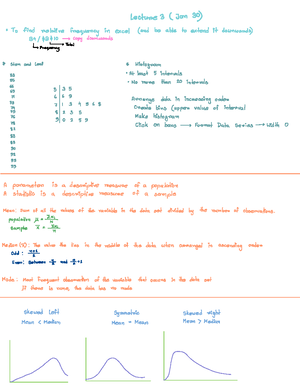 Lecture 3 (Jan 30)
• To find relative frequency in excel (and be able to extend it downwards)
B4 / $B$10 → copy downwards
Frequency
Total
Stem and Leaf
5 | 3 5
6 | 6 8
9 | 0 3 5 9
• Histogram
• At least 5 intervals
• No more than 20 intervals
Arrange data in increasing order
Create bins (upper value of interval
Make histogram
Click on bars → Format Data Series → width 0
A parameter is a descriptive measure of a population
A statistic is a descriptive measure of a sample
Mean: sum of all the values of the variable in the data set divided by the number of observations.
population
Sample
Median: The value that lies in the middle of the data when arranged in ascending order
Odd:
Even: Between n/2 and n/2 + 1
Mode: Most frequent observation of the variable that occurs in the data set
If there is none, the data has no mode
Skewed Left
Mean < Median
Symmetric
Mean =
Skewed Right
Mean > Median